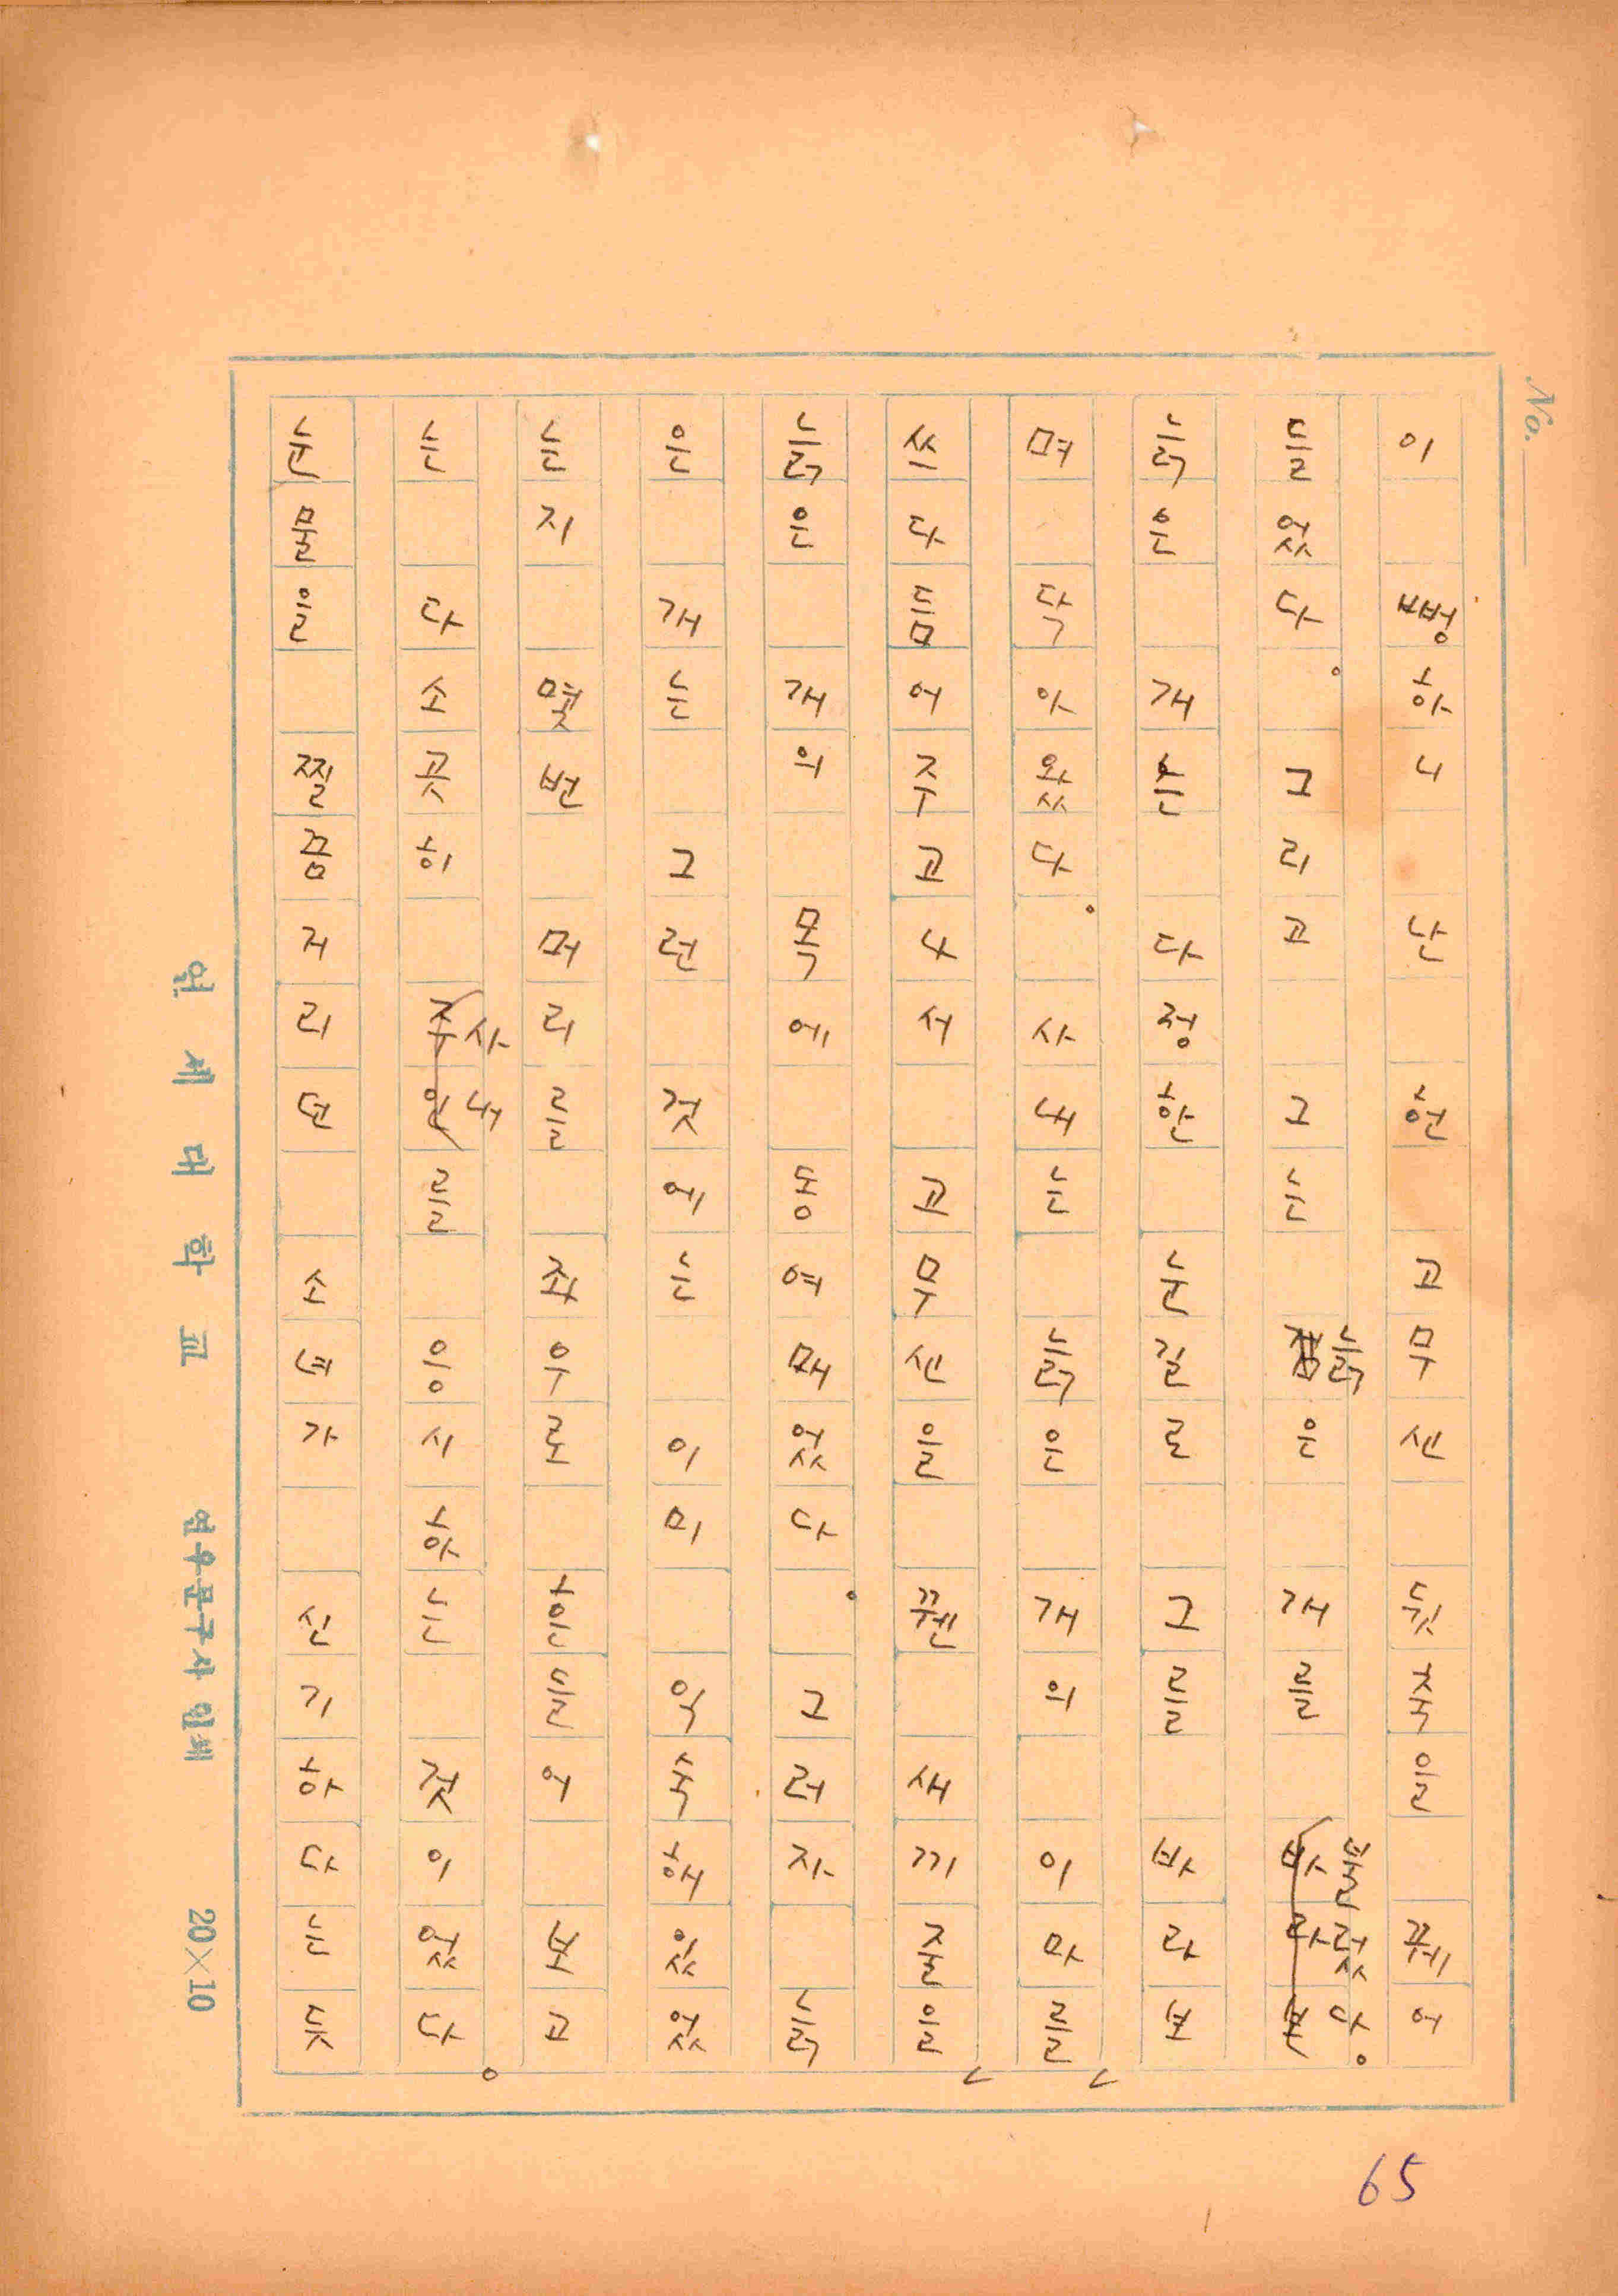 No.
이 뺑하니 난 헌 고무신 뒷축을 꿰어
들었다. 그리고 그는 늙은 개를 불렀다.
늙은 개는 다정한 눈길로 그를 바라보
며 닥아왔다. 사내는 늙은 개의 이마를
쓰다듬어주고나서 고무신을 꿴 새끼줄을
늙은 개의 목에 동여매었다. 그러자 늙
은 개는 그런 것에는 이미 익숙해있었
는지 몇번 머리를 좌우로 흔들어 보고
는 다소곳히 사내를 응시하는 것이었다.
눈물을 찔끔거리던 소녀가 신기하다는듯
연세대학교 연우문구사 인쇄 20×10
65